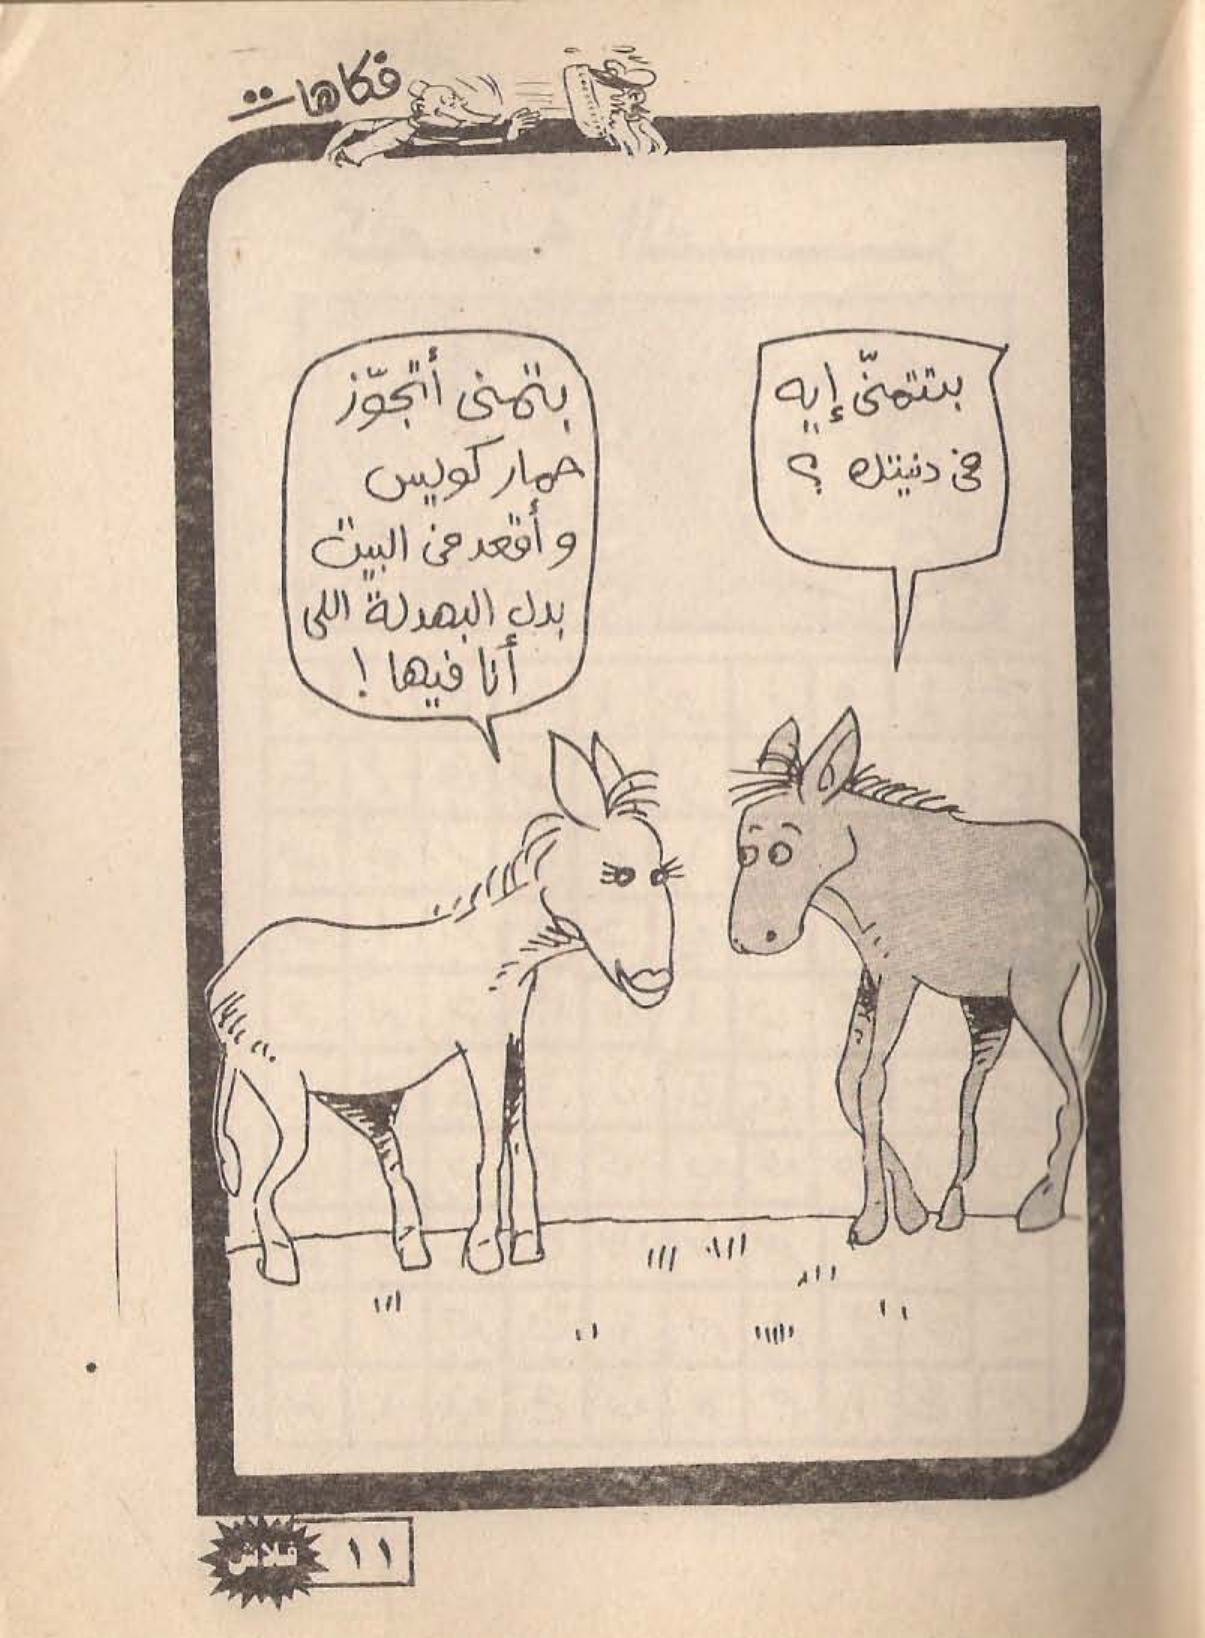 فكاهات
بتتمنّى إيه
فى دنيتك ؟
بتمنى أتجوّز
حمار كويس
و أقعد فى البيت
بدل البهدلة اللى
أنا فيها !
فلاش
١١